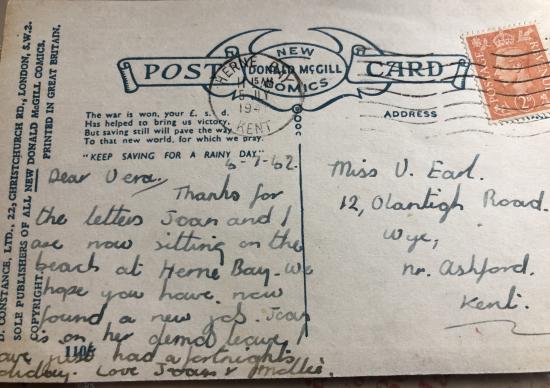 D. CONSTANCE, LTD., 22, CHRISTCHURCH RD., LONDON, S.W.2.
SOLE PUBLISHERS OF ALL NEW DONALD McGILL COMICS.
COPYRIGHT
PRINTED IN GREAT BRITAIN.
NEW
POST DONALD McGILL CARD
COMICS
HERNE BAY
15 AM
JLY
19
KENT
POSTAGE
2D
The war is won, your £. s. d.
Has helped to bring us victory,
But saving still will pave the way
To that new world, for which we pray.
"KEEP SAVING FOR A RAINY DAY."
ADDRESS
Dear Vera,
Thanks for
the letters Joan and I
are now sitting on the
beach at Herne Bay. We
hope you have now
found a new job. Joan
is on her demob leave, I
have just had a fortnights
holiday. Love Joan & Mollie.
1106
Miss V. Earl.
12, Olantigh Road.
Wye,
nr. Ashford.
Kent.